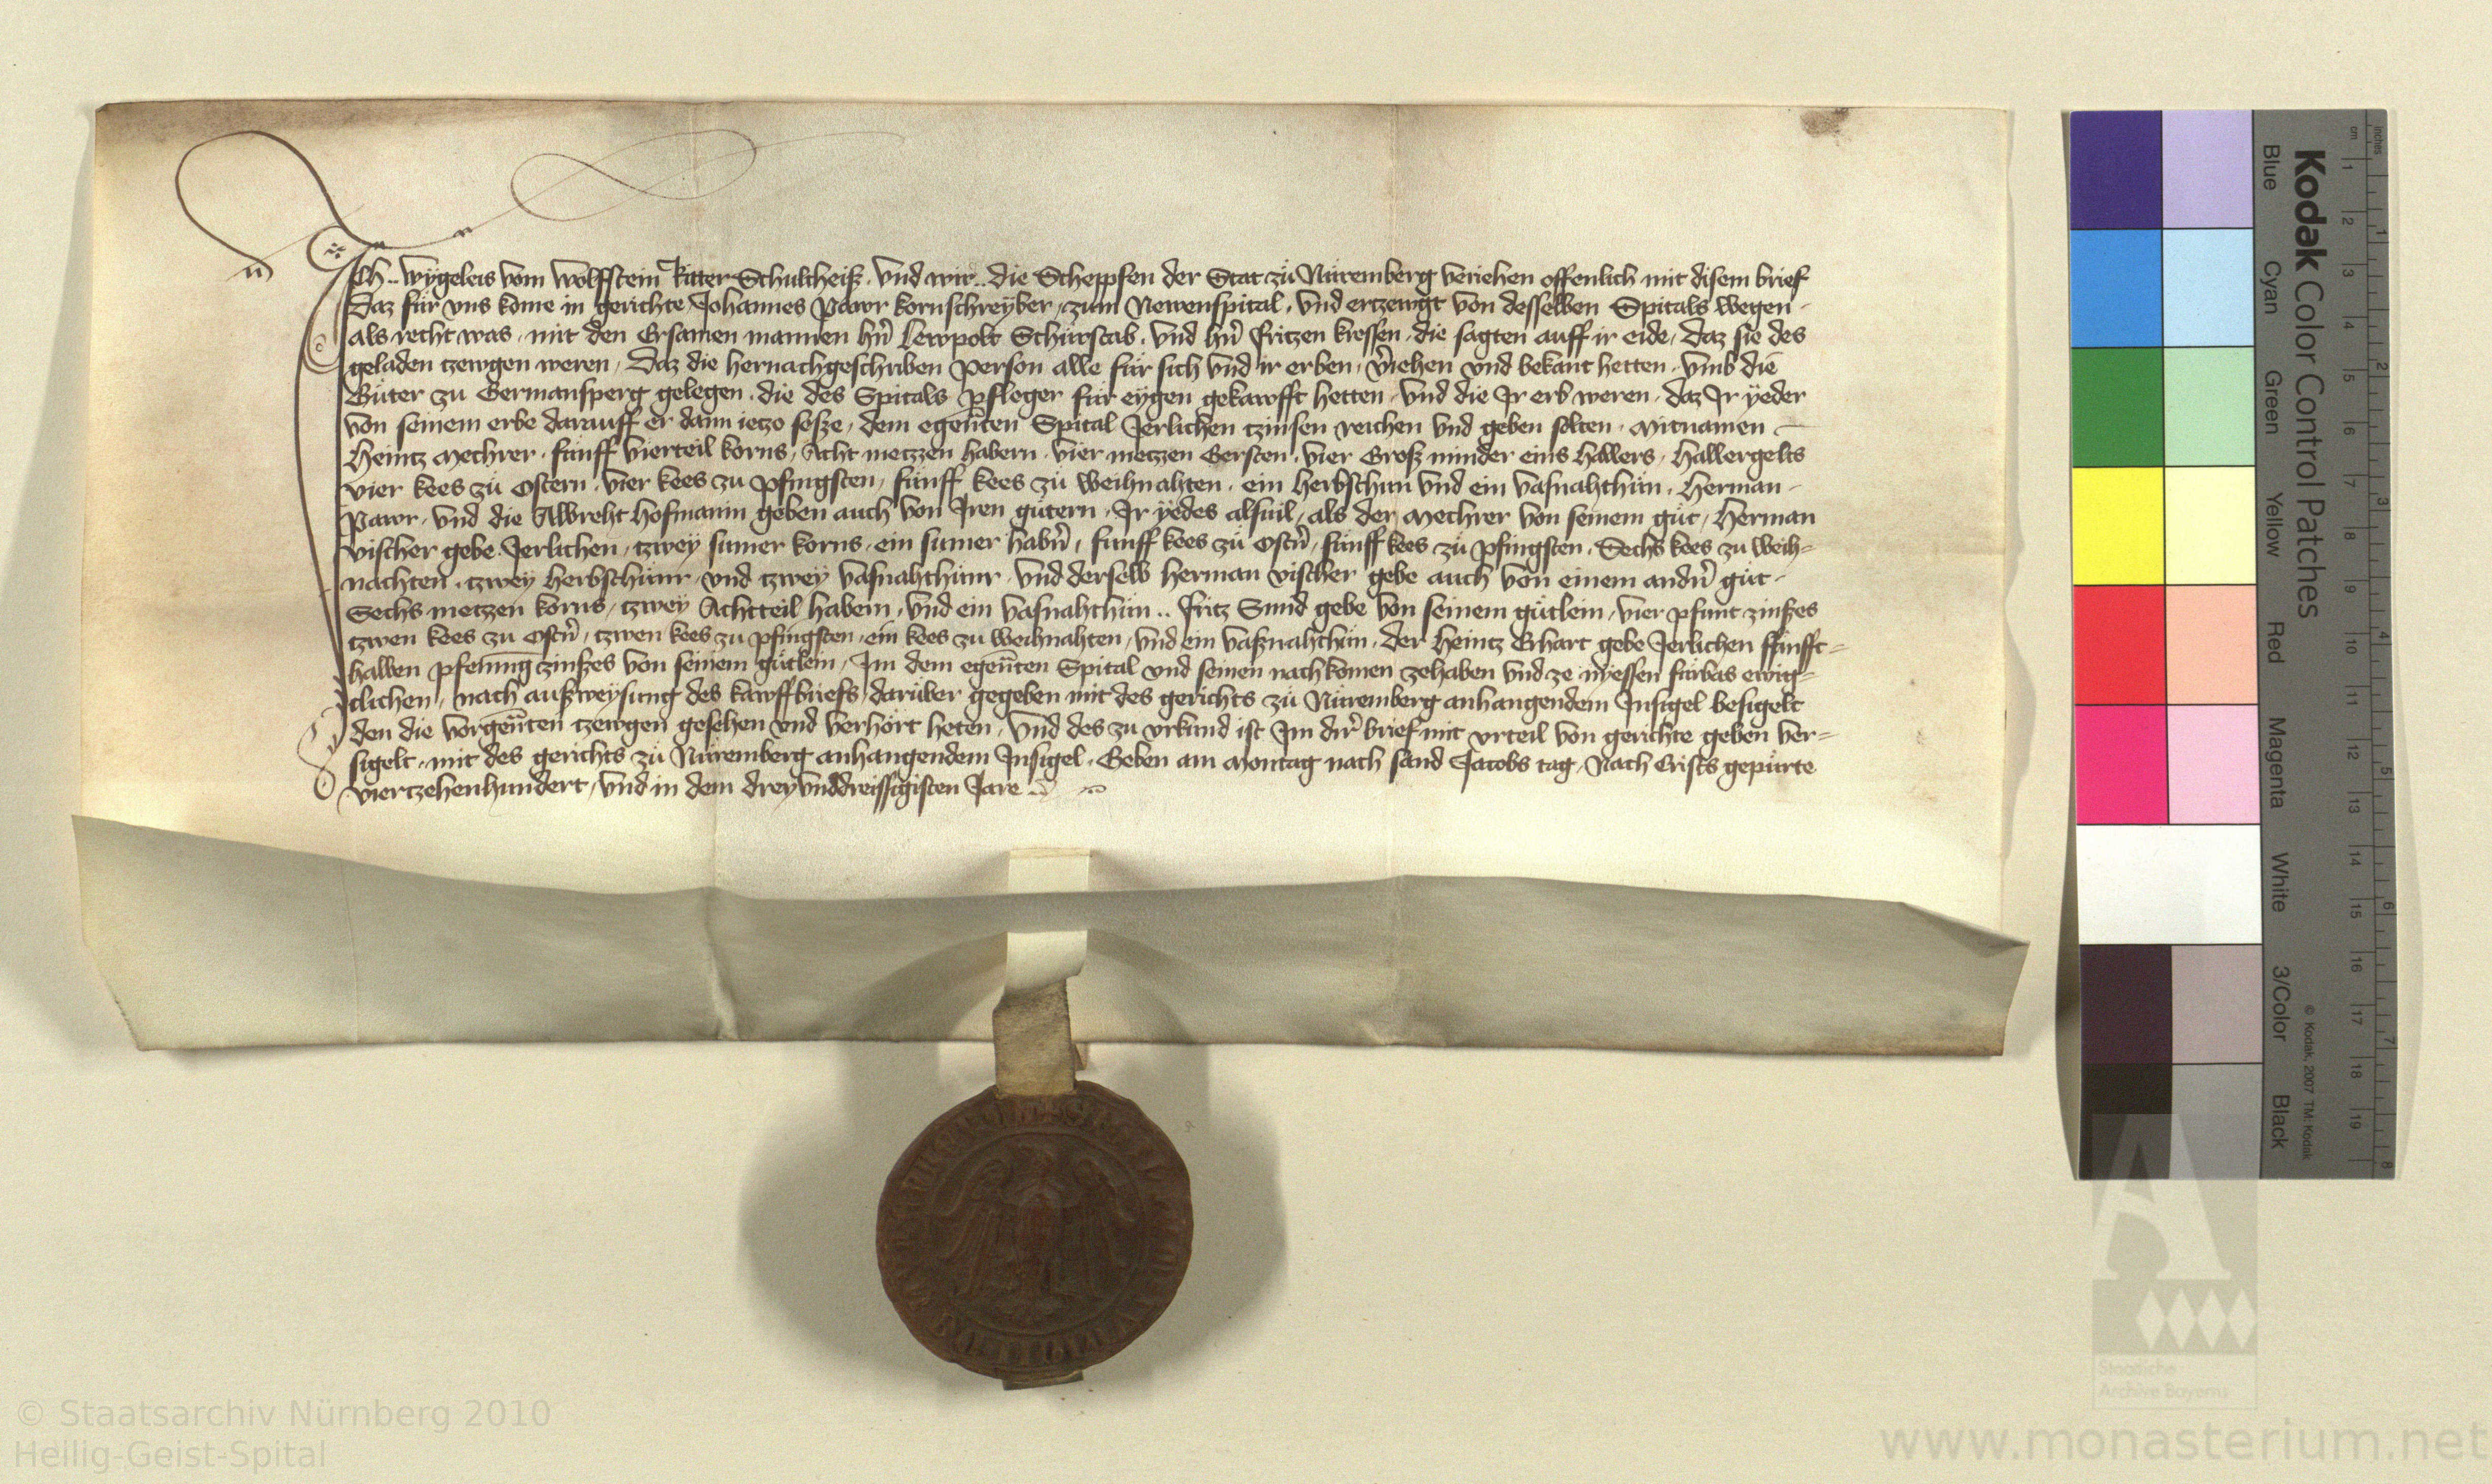 Ich .. Wygeleis vom Wolffstein Ritter Schultheiß . vnd wir .. die Scheppfen der Stat zů Nůremberg veriehen offenlich mit disem brief
Daz für vns kome in gerichte Johannes Pawr kornschreyber / zum Newenspital . vnd ertzewgt von desselben Spitals wegen .
als recht was . mit den Ersamen mannen hrñ Lewpolt Schürstab . vnd hrñ Fritzen kressen . die sagten auff ir eide / daz sie des
geladen tzewgen weren / Daz die hernachgeschriben Person alle für sich vnd ir erben / v̾iehen vnd bekant hetten . vmb die
Güter zu Germansperg gelegen . die des Spitals Pfleger für eygen gekawfft hetten . vnd die Jr erb weren . daz Jr yeder
von seinem erbe darauff er dann ietzo sesze / dem egen̄ten Spital Jerlichen tzinsen reichen vnd geben solten . Mitnamen
Heintz Mechrer . fünff vierteil korns / Acht metzzen habern . vier metzen Gersten . vier Groß minder eins hallers / hallergelts
vier kees zů Ostern . vier kees zu pfingsten / fünff kees zů weihnahten . ein herbsthun vnd ein vasnahthün . Herman .
Pawr . vnd die Albreht Hofmanin geben auch von Jren gütern . Jr yedes alsuil / als der Mechrer von seinem gůt / Herman
vischer gebe Jerlichen / tzwey sumer korns . ein sumer habr̄n / funff kees zů Ostr̄n / fünff kees zů pfingsten . Sechs kees zu weih=
nachten . tzwey herbsthünr . vnd tzwey vasnahthünr . vnd derselb Herman vischer gebe auch von einem andr̄n gůt .
Sechs metzen korns / tzwey Achtteil habern . vnd ein vasnahthün .. Fritz Smid gebe von seinem gütlein / vier pfunt zinßes
tzwen kees zu Ostr̄n / tzwen kees zu pfingsten . ein kees zu weihnahten / vnd ein vaßnahthün . der Heintz Erhart gebe Jerlichen fünfft=
halben pfenning zinßes von seinem gütlein / Jm dem egen̄ten Spital vnd seinen nachkomen zehaben vnd ze nyessen fürbas ewig=
clichen / nach außweysung des kawffbriefs / darüber gegeben mit des gerichts zů Nůremberg anhangendem Jnsigel besigelt
den die vorgen̄ten tzewgen gesehen vnd verhört heten . vnd des zu vrkund ist Jm dir̾ brief mit vrteil von gerichte geben ver=
sigelt . mit des gerichts zů Nůremberg anhangendem Jnsigel . Geben am Montag nach sand Jacobs tag . Nach Crists gepürte
viertzehenhundert / vnd in dem dreyvnddreissigisten Jare
Kodak Color Control Patches
Blue Cyan Green Yellow Red Magenta White 3/Color Black
© Kodak, 2007 TM: Kodak
cm 1 2 3 4 5 6 7 8 9 10 11 12 13 14 15 16 17 18 19
inches 1 2 3 4 5 6 7 8
Staatliche
Archive Bayerns
© Staatsarchiv Nürnberg 2010
Heilig-Geist-Spital
www.monasterium.net